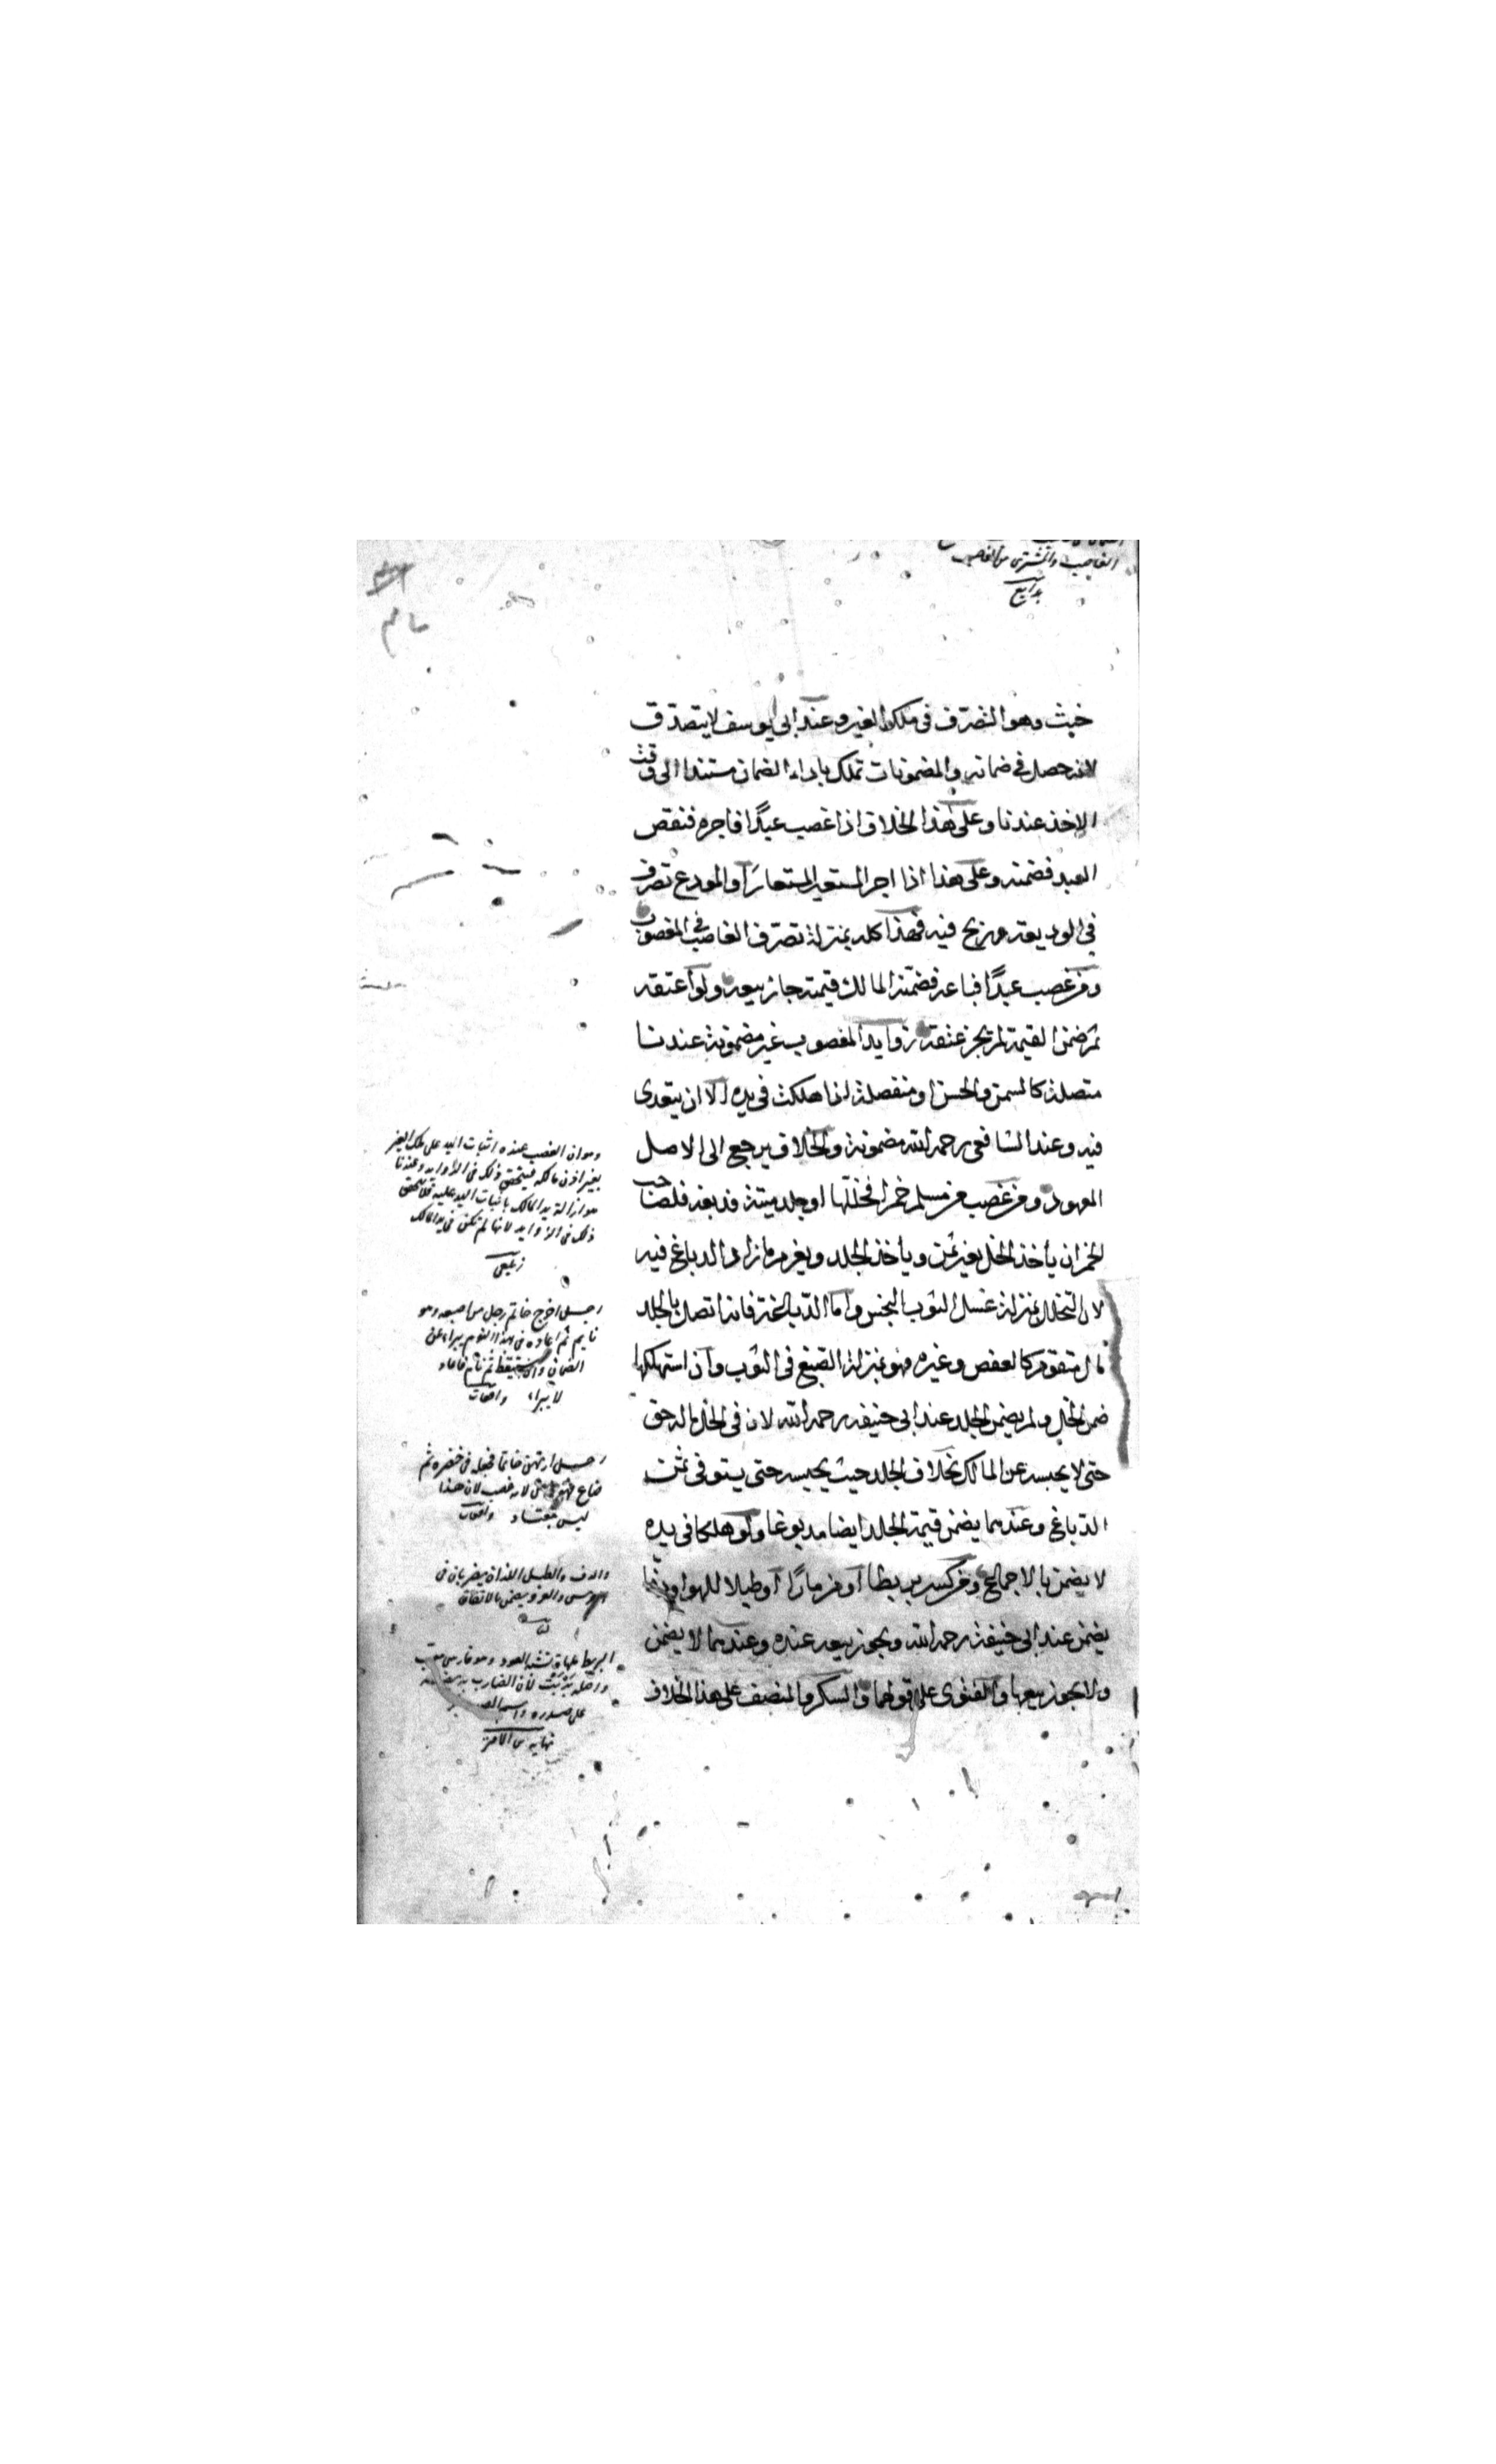 الغاصب والمشترى من الغاصب
بدايع
خبث وهو التصرّف فى ملك الغير وعند ابى يوسف لا يتصدّق
لانه حصل فى ضمانه والمضمونات تملك باداء الضمان مستندا الى وقت
الاخذ عندنا وعلى هذا الخلاف اذا غصب عبدًا فاجره فنقص
العبد فضمنه وعلى هذا اذا اجر المستعير المستعار او المودع تصرف
فى الوديعة وربح فيه فهذا كله بمنزلة تصرّف الغاصب فى المغصوب
ومن غصب عبدًا فباعه فضمّنه المالك قيمته جاز بيعه ولو اعتقه
ثم ضمن القيمة لم يجز عتقه زوايد المغصوب غير مضمونة عندنا
متصلة كالسمن والحسن او منفصلة اذا هلكت فى يده الا ان يتعدى
فيه وعند الشافعى رحمه الله مضمونة والخلاف يرجع الى الاصل
المعهود ومن غصب من مسلم خمرا فخلّلها او جلد ميتة فدبغه فلصاحب
الخمر ان يأخذ الخل بغير ثمن ويأخذ الجلد ويغرم ما زاد الدباغ فيه
لان التخلل بمنزلة غسل الثوب النجس واما الدّباغة فانه اتصل بالجلد
مال متقوم كالعفص وغيره فهو بمنزلة الصبغ فى الثوب وان استهلكها
ضمن الخل ولم يضمن الجلد عند ابى حنيفه رحمه الله لان فى الخل له حق
حتى لا يحبسه عن المالك بخلاف الجلد حيث يحبسه حتى يستوفى ثمن
الدّباغ وعندهما يضمن قيمة الجلد ايضا مدبوغا ولو هلكا فى يده
لا يضمن بالاجماع ومن كسر بربطا او مزمارًا او طبلا للهو او دفّا
يضمن عند ابى حنيفة رحمه الله ويجوز بيعه عنده وعندهما لا يضمن
ولا يجوز بيعها والفتوى على قولهما والسكر والمنصف على هذا الخلاف
وهو ان الغصب عنده اثبات اليد على ملك الغير
بغير اذن مالكه فيتحقق ذلك فى الزوايد وعندنا
هو ازالة يد المالك باثبات اليد عليه فلا يتحقق
ذلك فى الزوايد لانها لم تكن فى يد المالك
زيلعى
رجل اخرج خاتم رجل من اصبعه وهو
نايم ثم اعاده فى هذا النوم يبراء عن
الضمان وان استيقظ ثم نام فاعاد
لا يبراء واقعات
رجل ارتهن خاتما فجعله فى خنصره ثم
ضاع لانه غصب لان هذا
ليس بمعتاد واقعات
والدف والطبل اللذان يضربان فى
العرس والغزو يضمن بالاتفاق
البربط تشبه العود وهو فارسى معرب
واصله بربت لان الضارب به يضعه
على صدره واسم الصدر بر
نهايه ابن الاثير